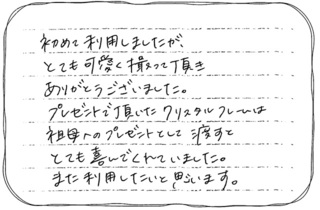 初めて利用しましたが、
とても可愛く撮って頂き
ありがとうございました。
プレゼントで頂いたクリスタルフレームは
祖母へのプレゼントとして渡すと
とても喜んでくれていました。
また利用したいと思います。